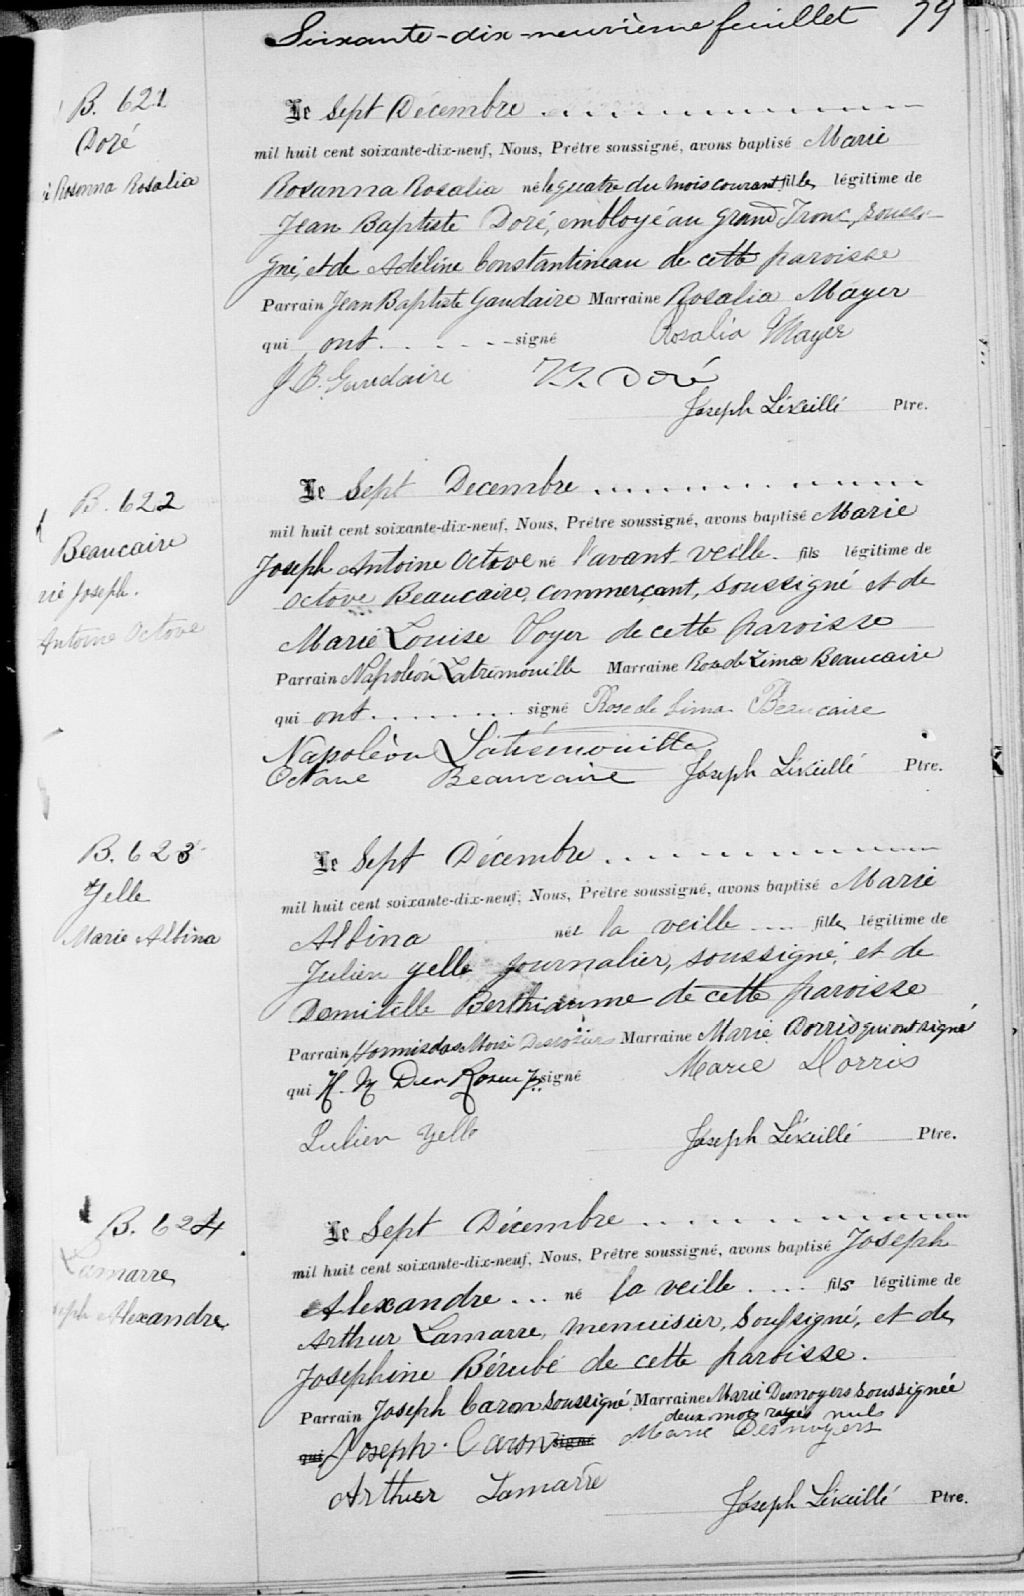 Soixante-dix-neuvième feuillet 79
B. 621
Doré
Rosanna Rosalia
Le Sept Décembre
mil huit cent soixante-dix-neuf, Nous, Prêtre soussigné, avons baptisé Marie
Rosanna Rosalia née le quatre du mois courant fille légitime de
Jean Baptiste Doré, employé au Grand Tronc, soussi-
gné, et de Adéline Constantineau de cette paroisse
Parrain Jean Baptiste Gaudaire Marraine Rosalia Mayer
qui ont signé Rosalia Mayer
J. B. Gaudaire Doré
Joseph Léveillé Ptre.
B. 622
Beaucaire
rie Joseph.
Antoine Octave
Le Sept Decembre
mil huit cent soixante-dix-neuf, Nous, Prêtre soussigné, avons baptisé Marie
Joseph Antoine Octave né l'avant veille fils légitime de
Octave Beaucaire, commerçant, soussigné et de
Marie Louise Voyer de cette paroisse
Parrain Napoléon Latrémouille Marraine Rose de Lima Beaucaire
qui ont signé Rose de Lima Beaucaire
Napoléon Latrémouille
Octave Beaucaire Joseph Léveillé Ptre.
B. 623
Yelle
Marie Albina
Le Sept Décembre
mil huit cent soixante-dix-neuf, Nous, Prêtre soussigné, avons baptisé Marie
Albina née la veille fille légitime de
Julien Yelle journalier, soussigné, et de
Demitille Berthiaume de cette paroisse
Parrain Hormisdas Moïse Marraine Marie Dorris qui ont signé
qui H. M signé Marie Dorris
Julien Yelle
Joseph Léveillé Ptre.
B. 624
Lamarre
seph Alexandre
Le Sept Décembre
mil huit cent soixante-dix-neuf, Nous, Prêtre soussigné, avons baptisé Joseph
Alexandre né la veille fils légitime de
Arthur Lamarre, menuisier, soussigné, et de
Josephine Bérubé de cette paroisse.
Parrain Joseph Caron soussigné Marraine Marie Desnoyers soussignée
deux mots rayés nuls
qui Joseph Caron signé Marie Desnoyers
Arthur Lamarre
Joseph Léveillé Ptre.